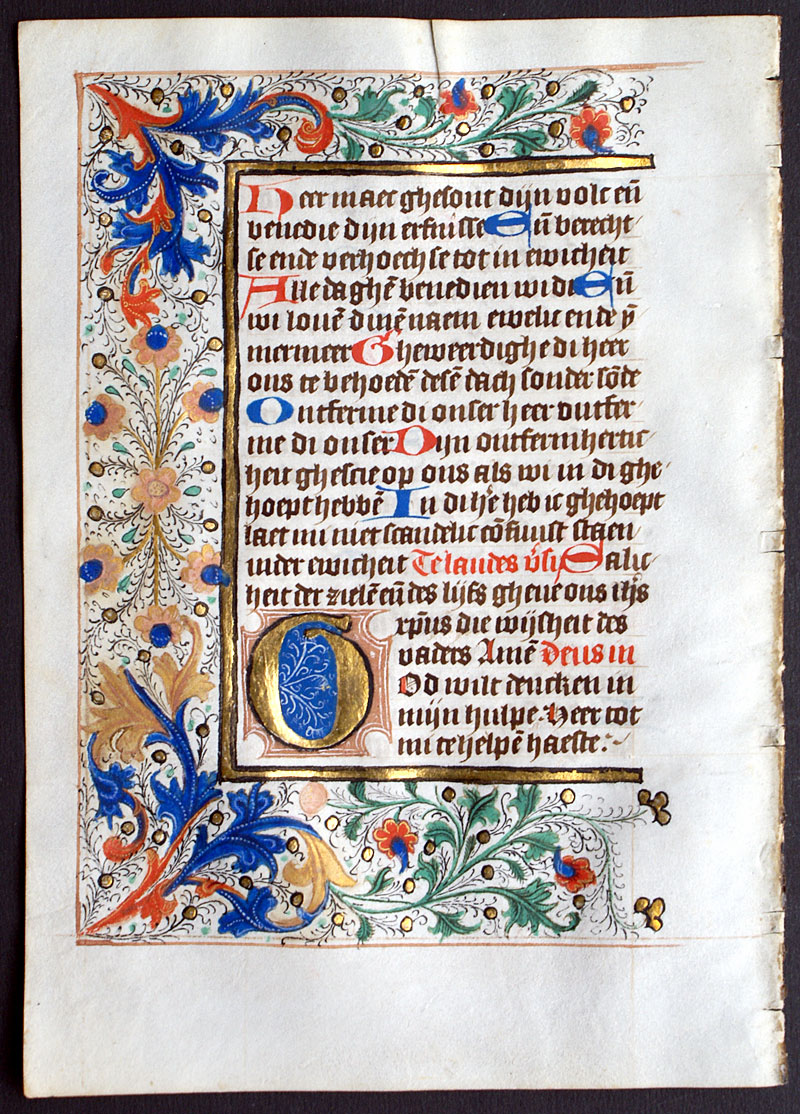 Heer maec ghesont dijn volc eñ
benedie dijn erfnisse Eñ berecht
se ende verhoech se tot in ewicheit
Alle daghē benedien wi di Eñ
wi louē dinē naem ewelic ende ȳ
mermeer Gheweerdighe di heer
ons te behoedē desē dach sonder sōde
Ontferme di onser heer ontfer
me di onser Dijn ontfermhertic
heit ghescie op ons als wi in di ghe
hoept hebbē In di he heb ic ghehoept
laet mi niet scandelic cōfuust staen
inder ewicheit Te laudes Salic
heit der zielē eñ des lijfs gheue ons ihs
xpus die wijsheit des
vaders Amē Deus in
God wilt dencken in
mijn hulpe. Heer tot
mi te helpē haeste.